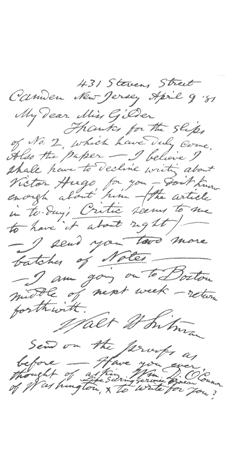 431 Stevens Street
Camden New Jersey April 9 '81
My dear Miss Gilder
Thanks for the slips
of No. 2, which have duly come.
Also the paper — I believe I
shall have to decline writing about
Victor Hugo for you — (don't know
enough about him — the article
in to-day's Critic seems to me
to have it about right) —
— I send you two more
batches of Notes —
— I am going on to Boston
middle of next week — return
forthwith.
Walt Whitman
Send on the proofs as
before — Have you ever
thought of asking Wm D. O'Connor
Life Saving Service Bureau
of Washington, x to write for you?